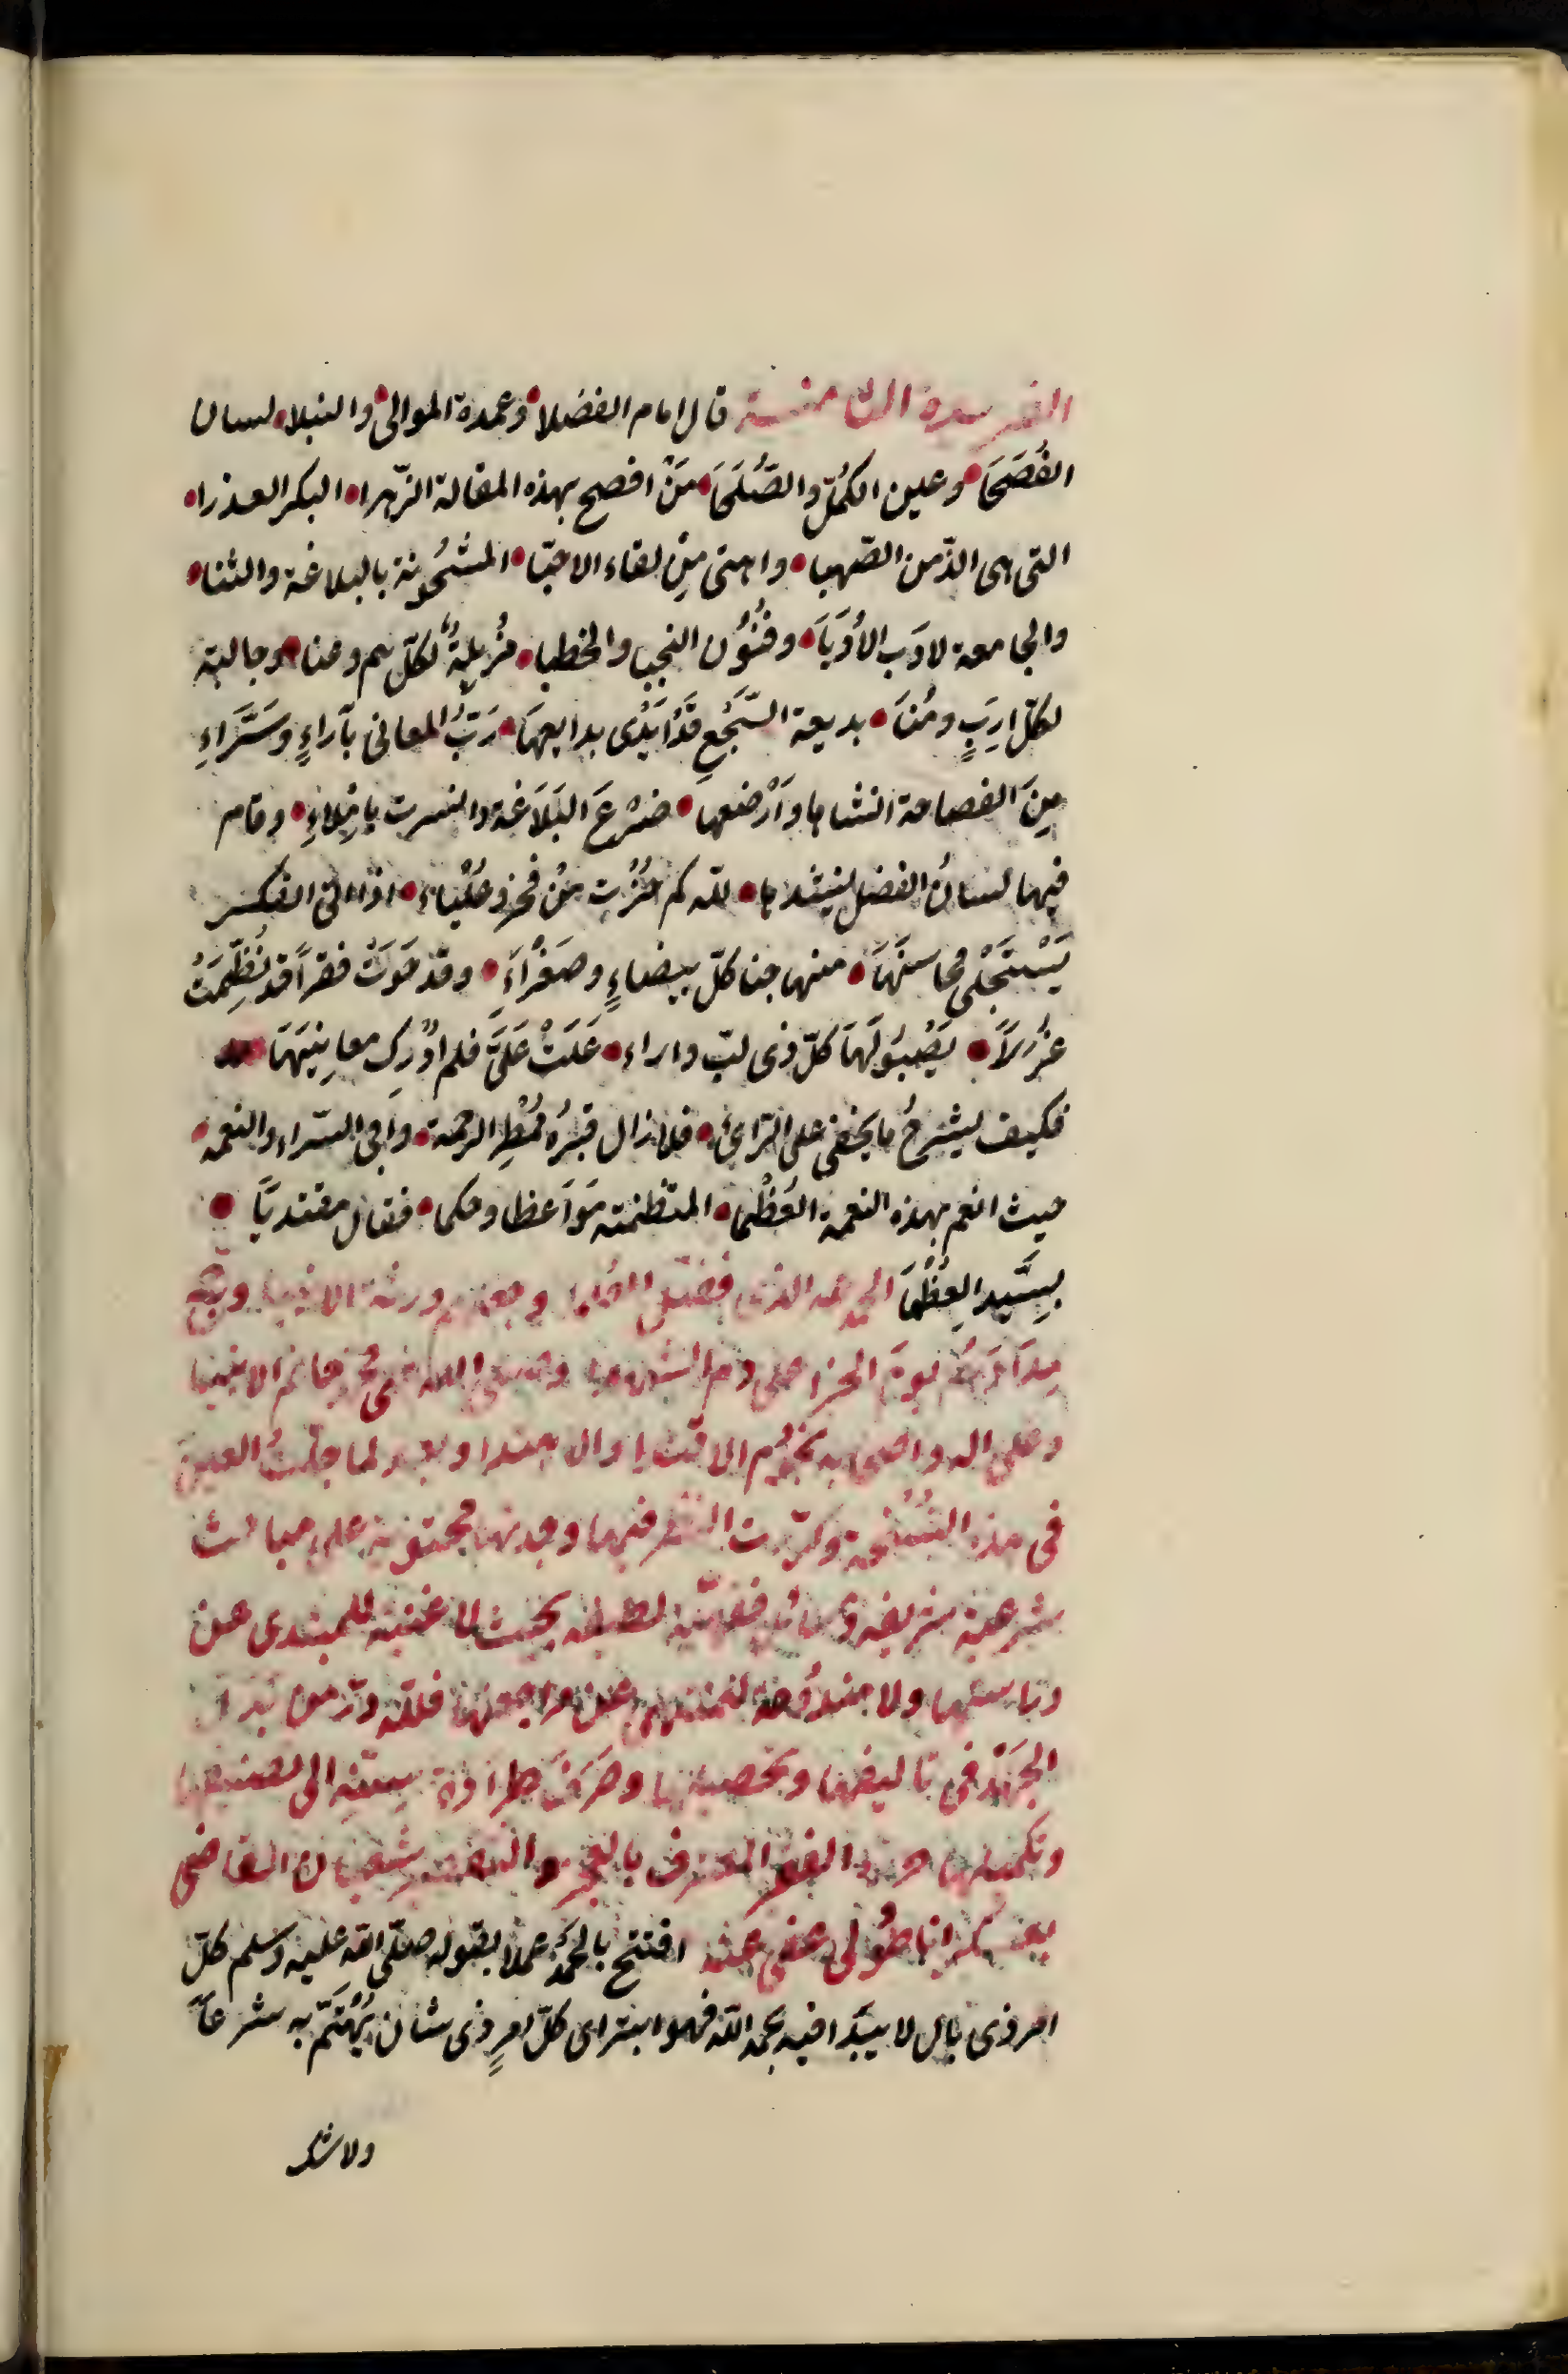 الفريدة الثامنة قال امام الفضلا وعمدة الموالى والنبلا لسان
الفُصَحَا وعين الكُمّل والصُّلَحَا مَنْ افصح بهذه المقالة الزّهرا البكر العذرا
التى هى الذّ من الصّهبا واهنى مِنْ لقاء الاحبّا المشحُونة بالبلاغة والثنا
والجامعة لادَب الأُدَبَا وفنُوُن النجبا والخطبا مُزيلةٌ لكلّ هم وعنا وجالبة
لكلّ ارِبٍ ومُنَا بديعة السّجْعِ قَدْ اَبْدَى بدايعهَا رَبُّ المعانى بآراءٍ وسَرَّاءِ
مِنَ الفصاحة انشاها وَاَرْضعهَا ضرْعَ البَلَاغة والنسرت بإِملاءِ وقام
فيها لسانُ الفضل ينشدها للّه كم حُزْتِ مِنْ فخر وعَلْياء اذا اتى الفكر
يَسْتَجْلى محاسنَهَا منها جنا كلّ بيضاءٍ وصَفْرَآءِ وقد حَوَتْ فقراً قد نُظِّمَتْ
غُرَراً يَصْبُو لَهَا كلّ ذى لبّ واراء عَلَتْ عَلَىَّ فلم اُدْرِك معانِيَهَا
فكيف يشرحُ ما يخفى على الرّائى فلا زال قبرُهُ مُمْطِر الرحمة وافى السّراء والنعمة
حيث انعم بهذه النعمة العُظْمَا المتظمنة مَوَاعظا وحكما فقال مقتديًا
بِسَيّد العُظْمَا الحمد لله الذى فضّل العُلما وجعلهم ورثة الانبيا ورجّح
مِدَادَهُم يومَ الجزا على دم الشهدا وصلى الله على محمّد خاتم الانبيا
وعلى اله واصحابه نجُوم الاقتدا والاهتدا وبعد لما جلتُ العين
فى هذه النُّسْخة وكرّرت النظر فيها وجدتها محتوية على مباحث
شرعية شريفه ومسائل فقهيّه لطيفه بحيث لا غنية للمبتدى عن
دراستها ولا مندُوحة للمنتهى عن مراجعتها فللّه درّ من بذل
الجهَد فى تاليفها وتحصيلها وصَرَفَ الى تصنيفها
وتكميلها حرره الفقير المعترف بالعجز والتقصير شعبان القاضى
بعسكر اناطُولى عفى عنه افتتح بالحَمْدُ عملا بقوله صلّى اللّه عليه وسلم كلّ
امر ذى بال لا يبدَا فيه بحمد اللّه فهو ابتر اى كلّ امرٍ ذى شان يُهْتَمّ به شرعاً
ولا شك